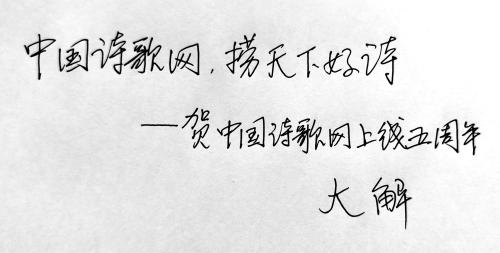 中国诗歌网，捞天下好诗
——贺中国诗歌网上线五周年
大解